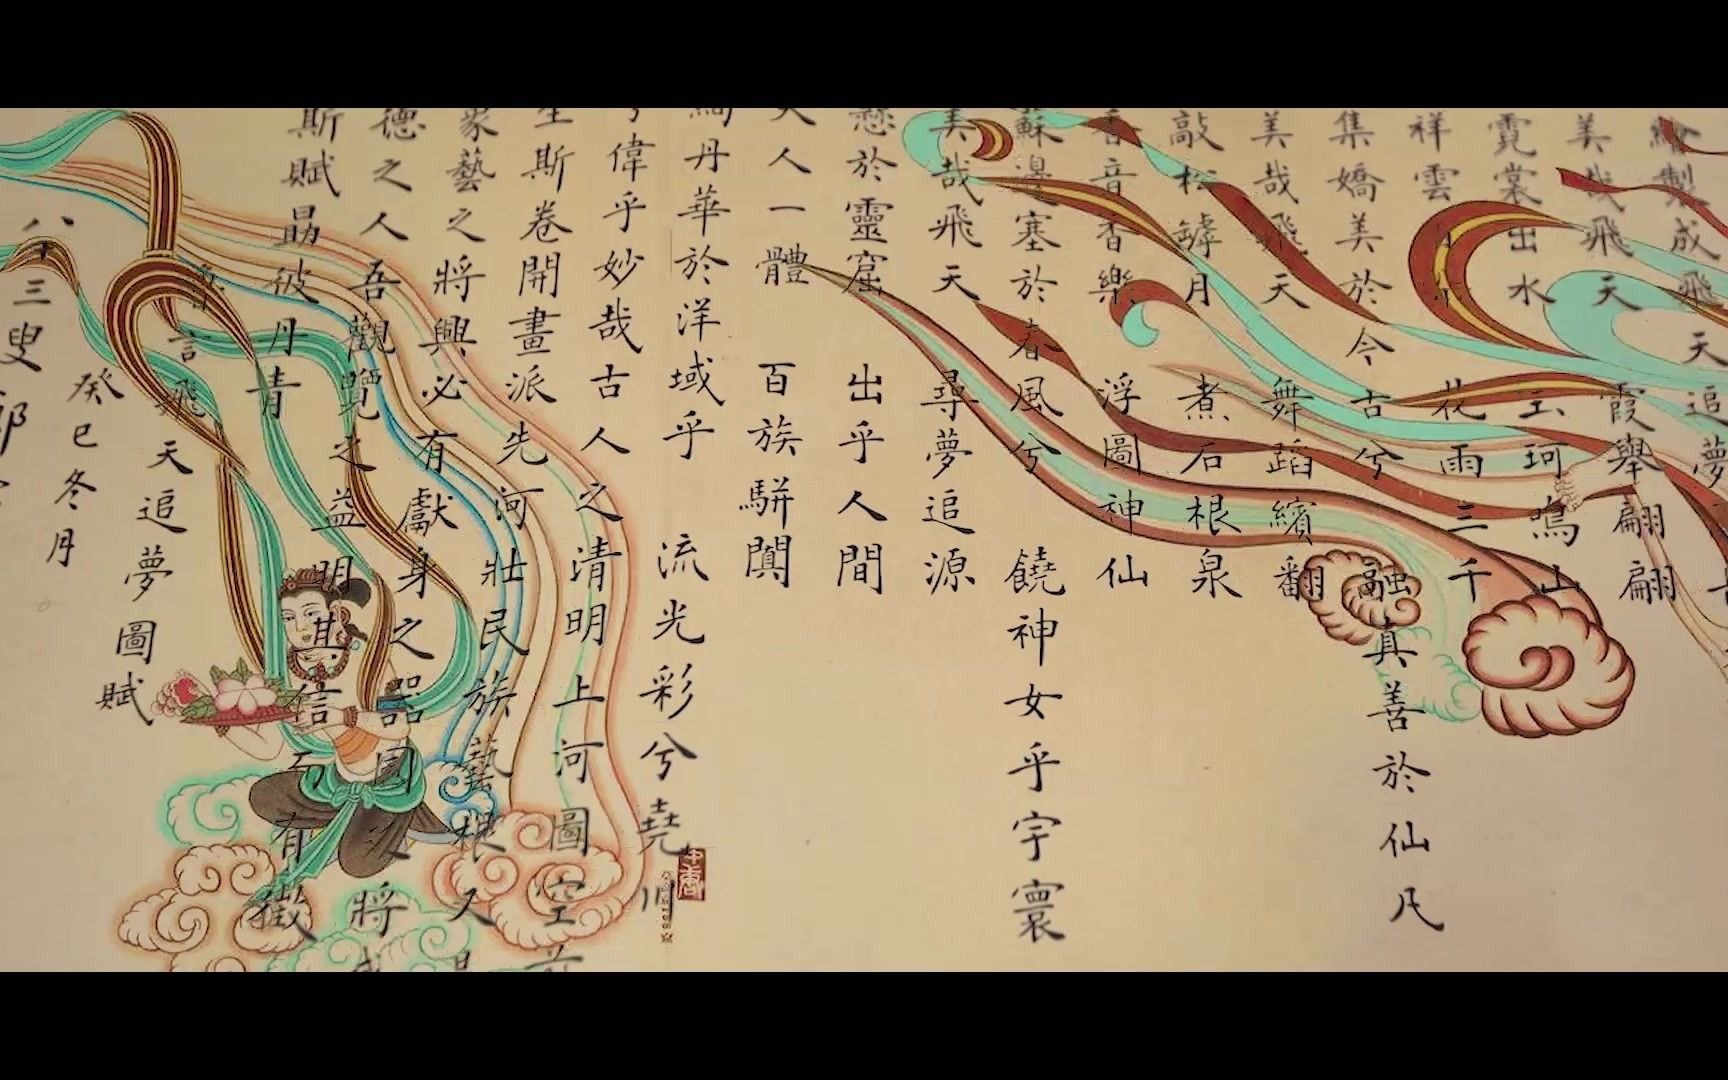 繪製成飛天追夢
美哉飛天 霞舉翩翩
霓裳出水 玉珂鳴山
祥雲 花雨三千
集嬌美於今古兮 融真善於仙凡
美哉飛天 舞蹈繽翻
敲松罅月 煮石根泉
香音香樂 浮圖神仙
蘇邊塞於春風兮 饒神女乎宇寰
美哉飛天 尋夢追源
於靈窟 出乎人間
天人一體 百族駢闐
絢丹華於洋域乎 流光彩兮堯川
偉乎妙哉古人之清明上河圖空前
斯卷開畫派先河壯民族藝根又是
藝之將興必有獻身之器 將
德之人吾觀覽之益明其信而有徵
斯賦勗彼丹青
言飛天追夢圖賦
癸巳冬月
八十三叟郭